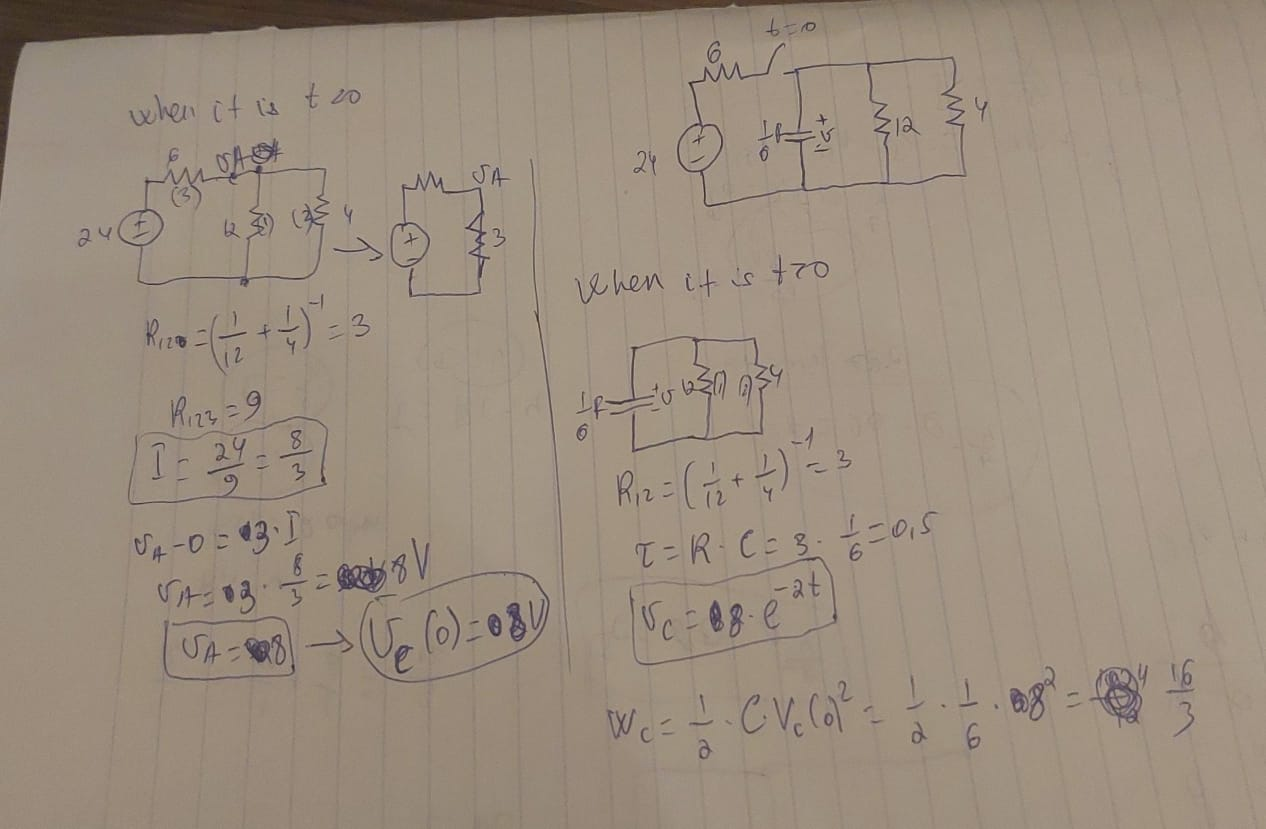 when it is t<0
6
(3)
vA
24
12
(1)
(2)
4
vA
3
R12 = (1/12 + 1/4)^-1 = 3
R123 = 9
I = 24/9 = 8/3
vA - 0 = 3 · I
vA = 3 · 8/3 = 8V
vA = 8 → Vc(0) = 8V
t=0
6
24
1/6 F
+
v
-
12
4
when it is t>0
1/6 F
+
v
-
12
(1)
4
R12 = (1/12 + 1/4)^-1 = 3
τ = R · C = 3 · 1/6 = 0,5
vc = 8 · e^-2t
Wc = 1/2 · C · Vc(0)^2 = 1/2 · 1/6 · 8^2 = 16/3